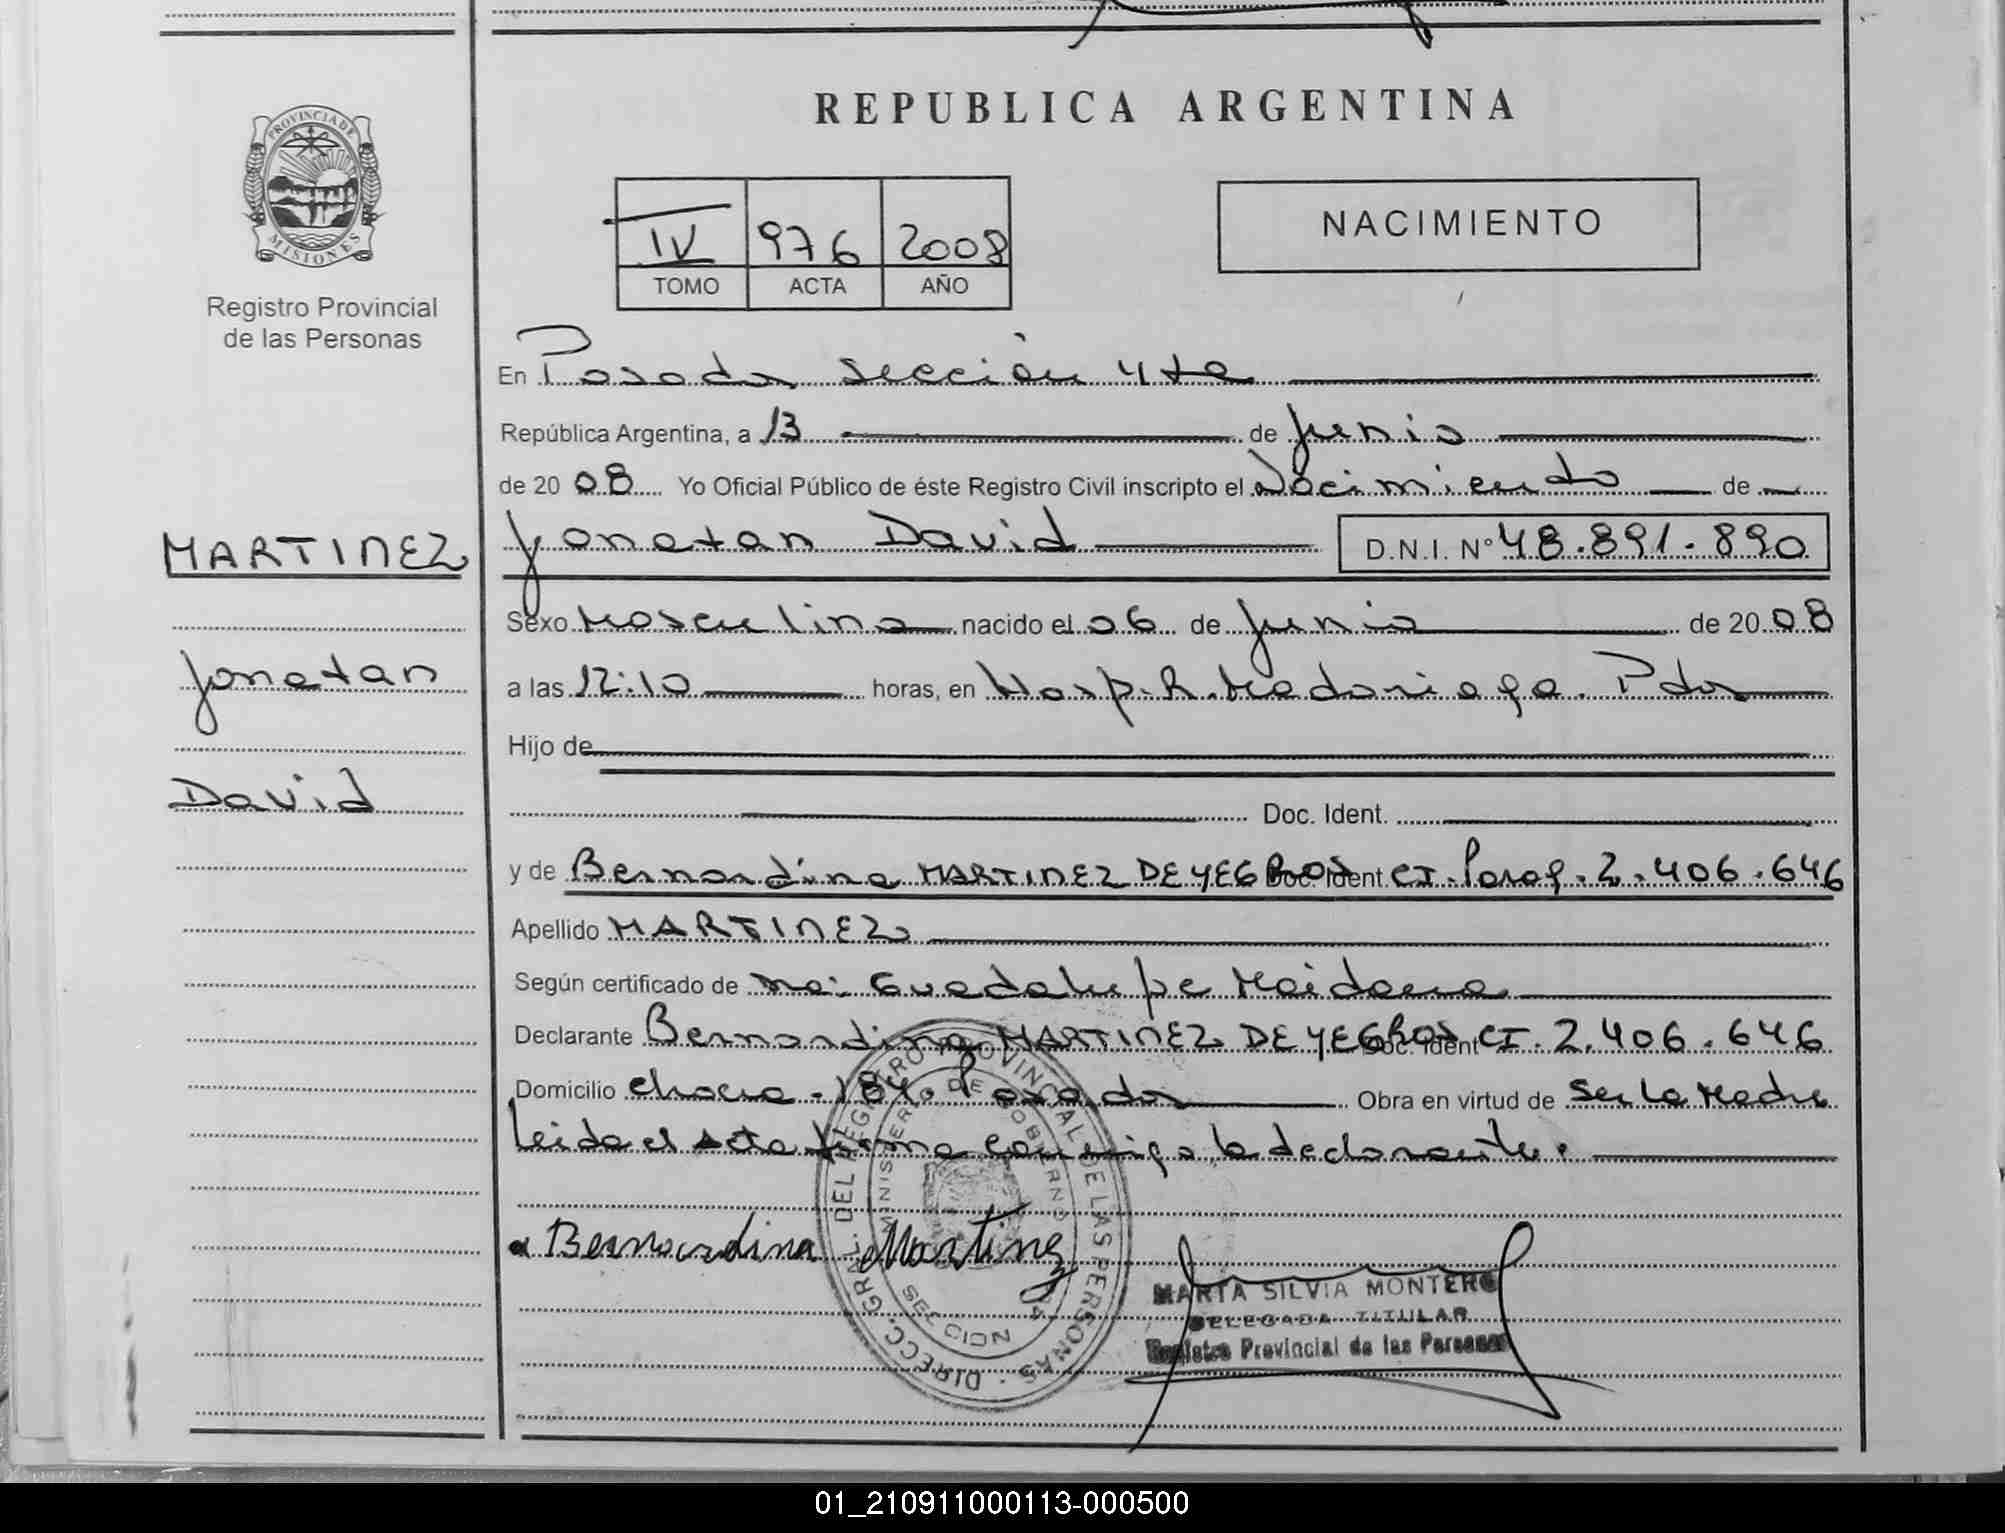 REPUBLICA ARGENTINA
PROVINCIA DE
MISIONES
Registro Provincial
de las Personas
IV 976 2008
TOMO ACTA AÑO
NACIMIENTO
En Posadas sección 4ta
República Argentina, a 13 de Junio
de 2008 Yo Oficial Público de éste Registro Civil inscripto el Nacimiento de
MARTINEZ
Jonatan David D.N.I. N° 48.891.890
Sexo Masculino nacido el 06 de Junio de 2008
Jonatan
a las 12:10 horas, en Hosp. R. Madariaga. Pdas
Hijo de
David
Doc. Ident.
y de Bernardina MARTINEZ DE YEGROS Doc. Ident CI. Parag. 2.406.646
Apellido MARTINEZ
Según certificado de Guadalupe Maidana
Declarante Bernardina MARTINEZ DE YEGROS Doc. Ident CI. 2.406.646
Domicilio 184. Posadas Obra en virtud de Ser La Madre
Leída el Acta firma conmigo la declarante.
DIRECC. GRAL. DEL REGISTRO PROVINCIAL DE LAS PERSONAS
MINISTERIO DE GOBIERNO
SECCION 4a
Bernardina Martinez
MARTA SILVIA MONTERO
DELEGADA TITULAR
Registro Provincial de las Personas
01_210911000113-000500